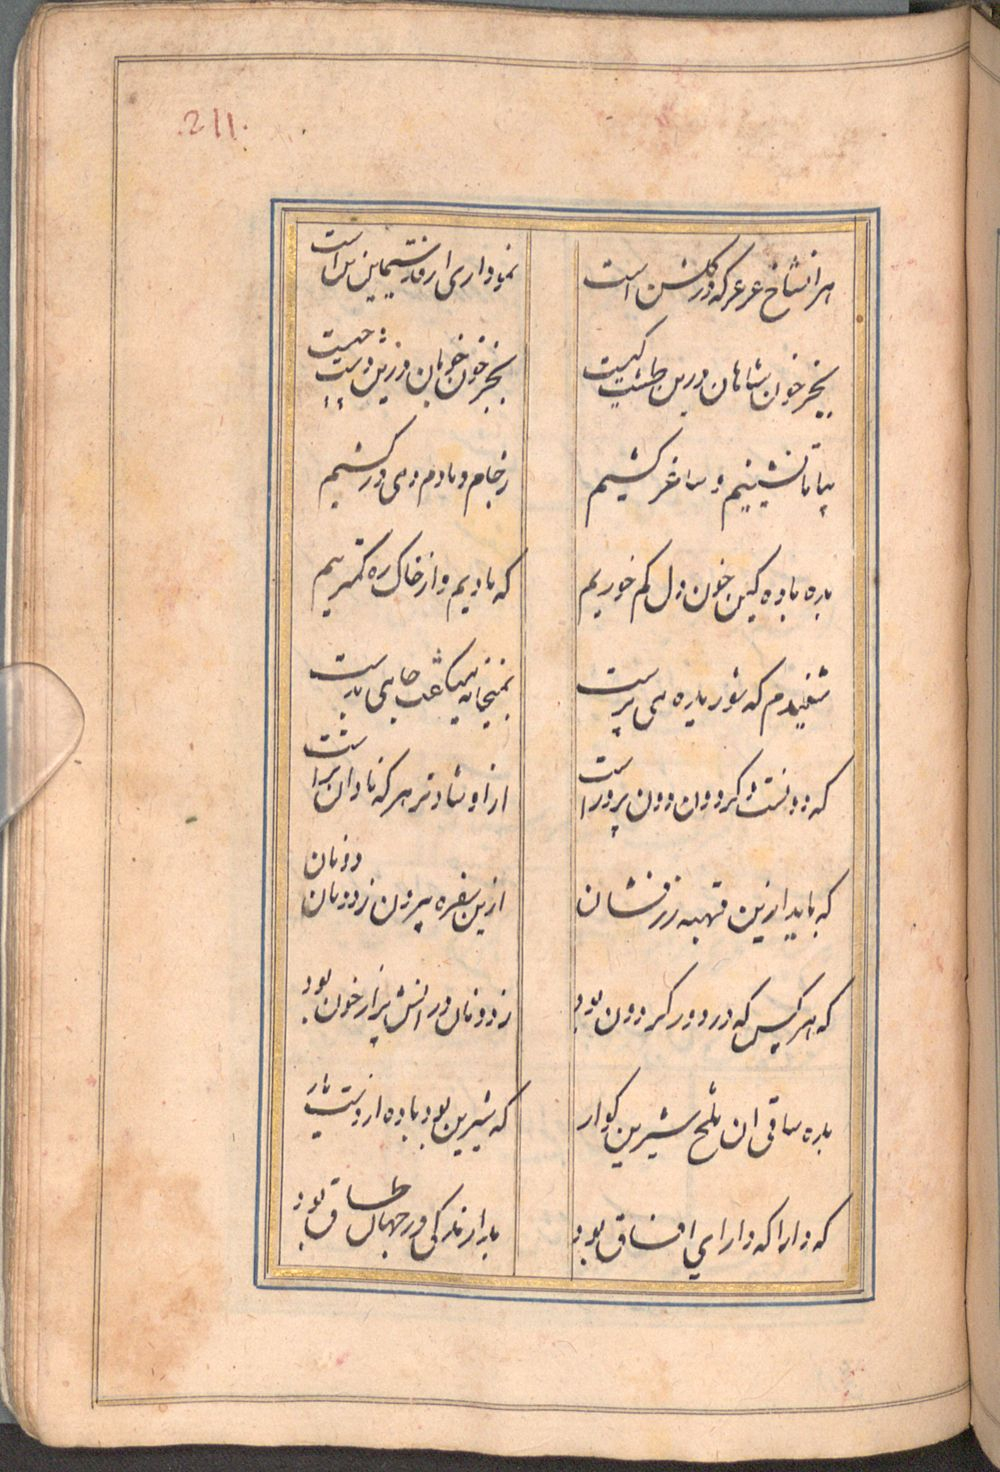 211.
هر ان شاخ عرعر که در گلشن است
نمو داری از قد سیمین تن است
بجز خون شاهان درین طشت نیست
بجز خون خوبان درین دشت نیست
بیا تا نشینیم و ساغر کشیم
ز جام دمادم دمی در کشیم
بده باده کین خون دل کم خوریم
که بادیم و از خاک ره کمتریم
شنیدم که شوریده می پرست
بمیخانه میگفت جامی بدست
که دونست و گردون دون پرور است
از او شادتر هر که نادان تر است
که باید ازین قهبه زرفشان
ازین سفره بیرون ز دونان دونان
که هر کس که در دور گردون بود
ز دونان درانش پر از خون بود
بده ساقی ان تلخ شیرین گوار
که شیرین بود باده از دست یار
که دارا که دارای افاق بود
بدارندگی در جهان طاق بود